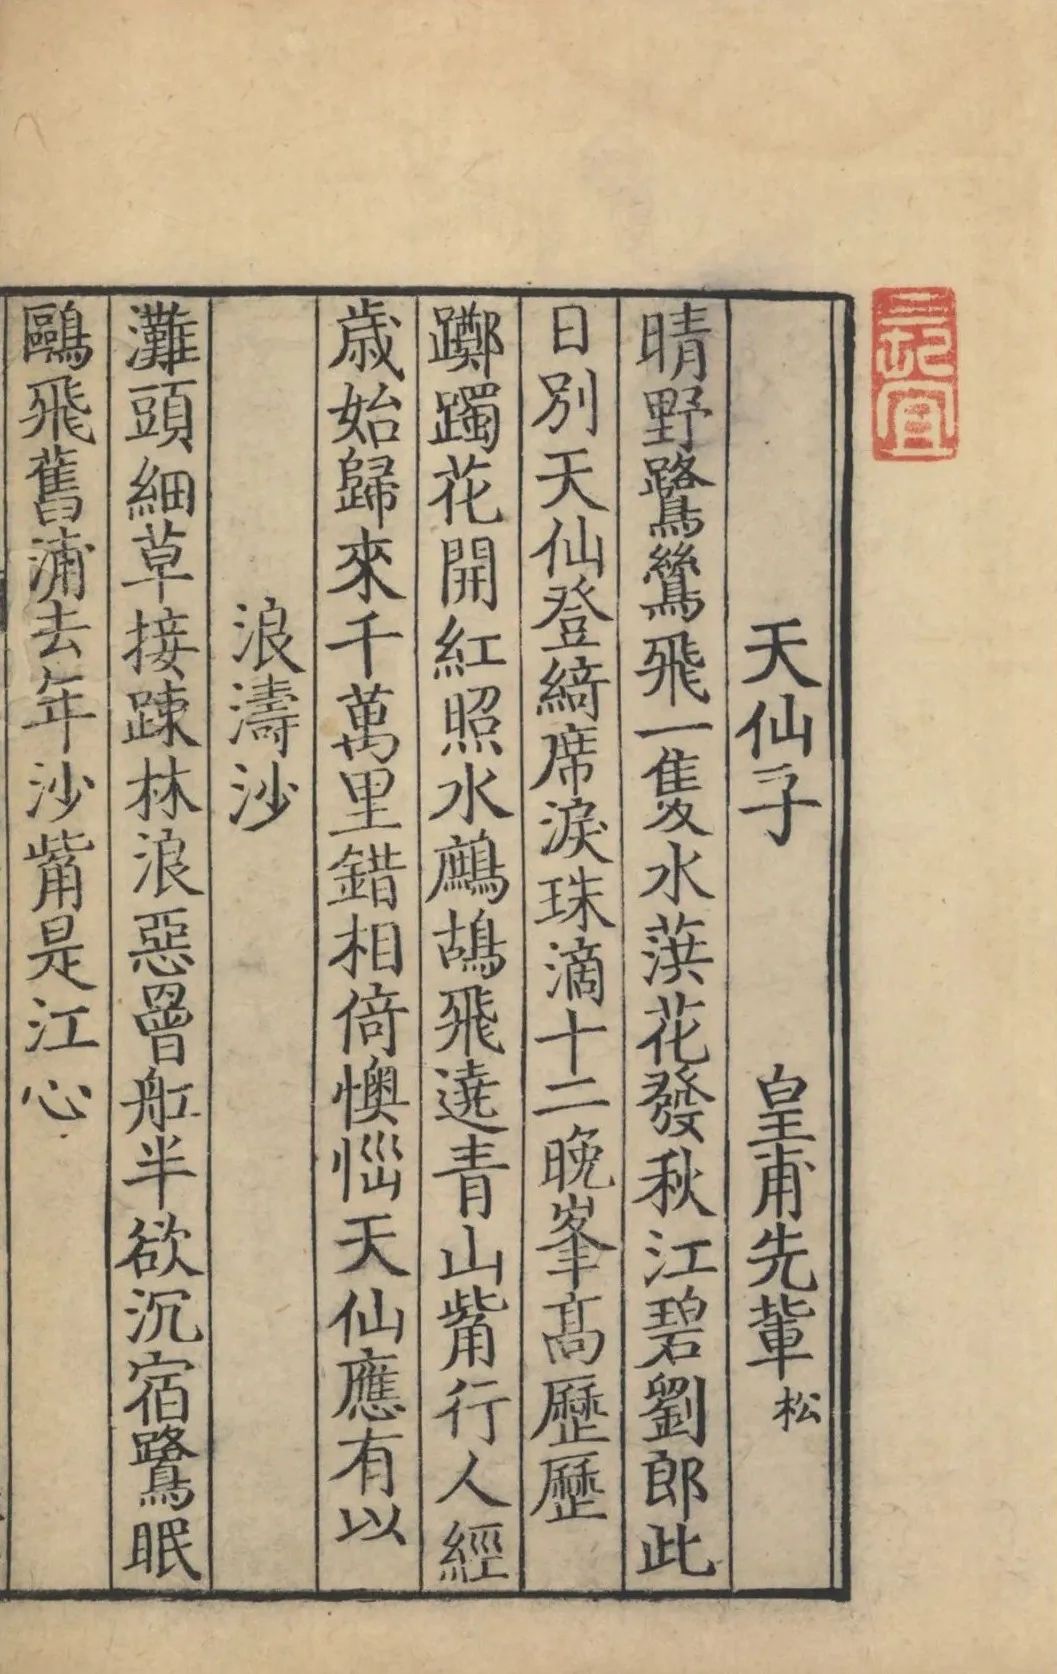 天仙子 皇甫先輩松
晴野鷺鷥飛一隻水葓花發秋江碧劉郎此
日別天仙登綺席淚珠滴十二晚峯髙歷歷
躑躅花開紅照水鷓鴣飛遶青山觜行人經
歲始歸來千萬里錯相倚懊惱天仙應有以
浪濤沙
灘頭細草接踈林浪惡罾舡半欲沉宿鷺眠
鷗飛舊浦去年沙觜是江心